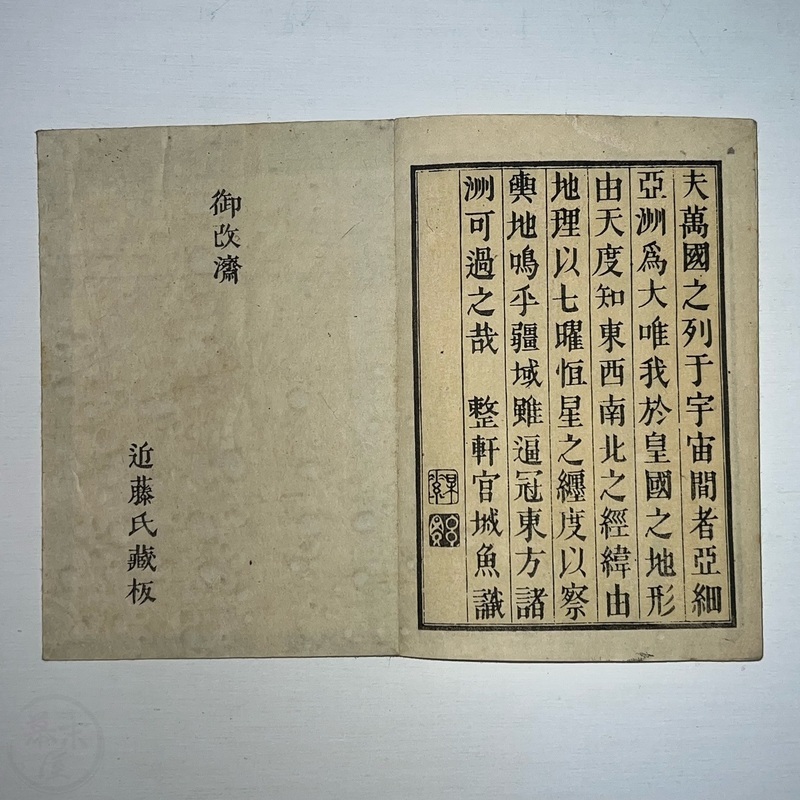 夫萬國之列于宇宙間者亞細
亞洲爲大唯我於皇國之地形
由天度知東西南北之經緯由
地理以七曜恒星之纏度以察
輿地鳴乎疆域雖逼冠東方諸
洲可過之哉　整軒官城魚識
御改濟
近藤氏藏板